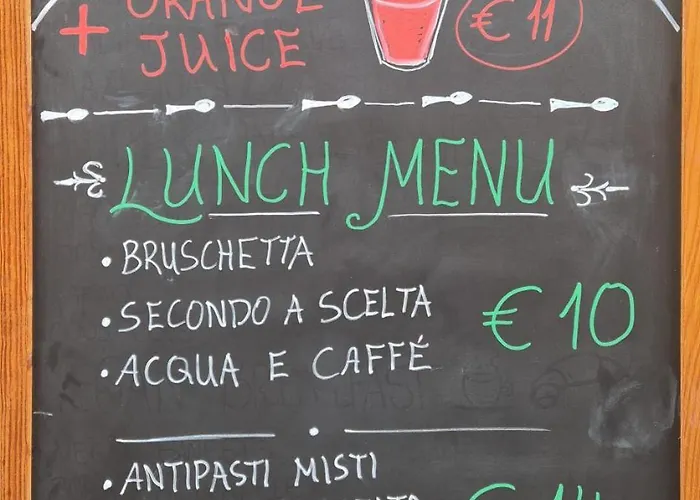 + ORANGE
JUICE
€ 11
LUNCH MENU
• BRUSCHETTA
• SECONDO A SCELTA
• ACQUA E CAFFÉ
€ 10
• ANTIPASTI MISTI